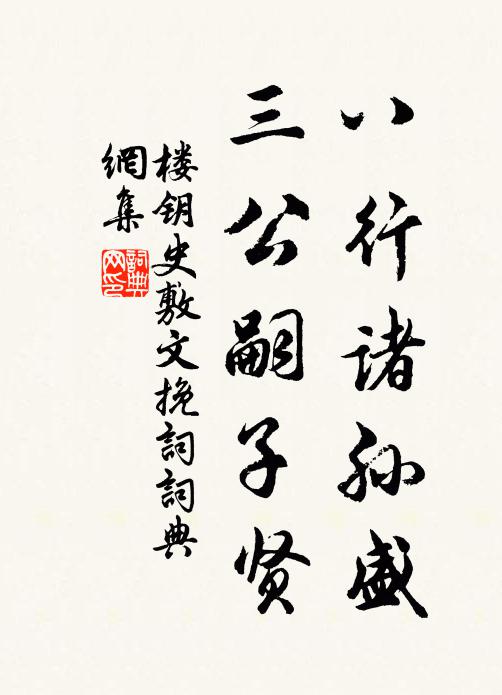 八行诸孙盛
三公嗣子贤
楼钥史敷文挽词词典
網集
詞典网印